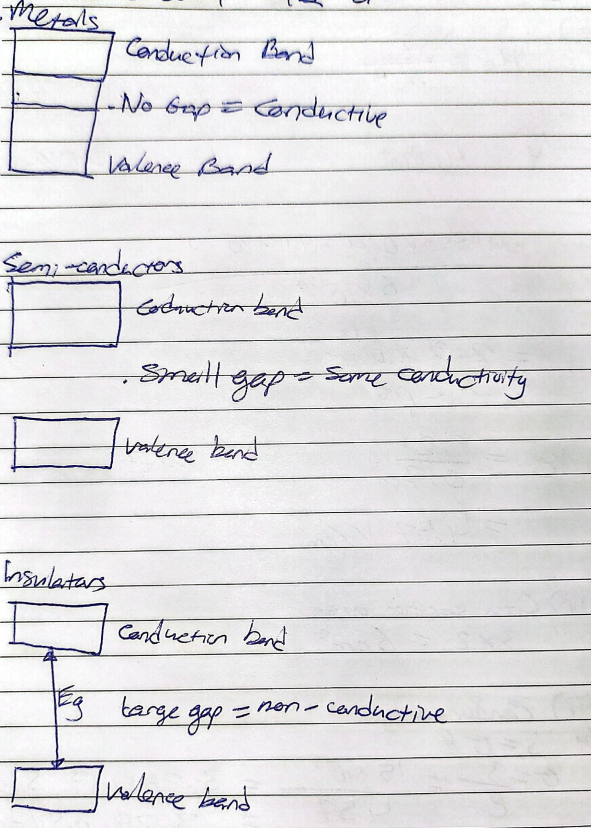 . Metals
Conduction Band
. No Gap = Conductive
Valence Band
Semi-conductors
Coduction band
. Small gap = Some conductivity
Valence band
Insulators
Conduction band
Eg
Large gap = non-conductive
Valence band